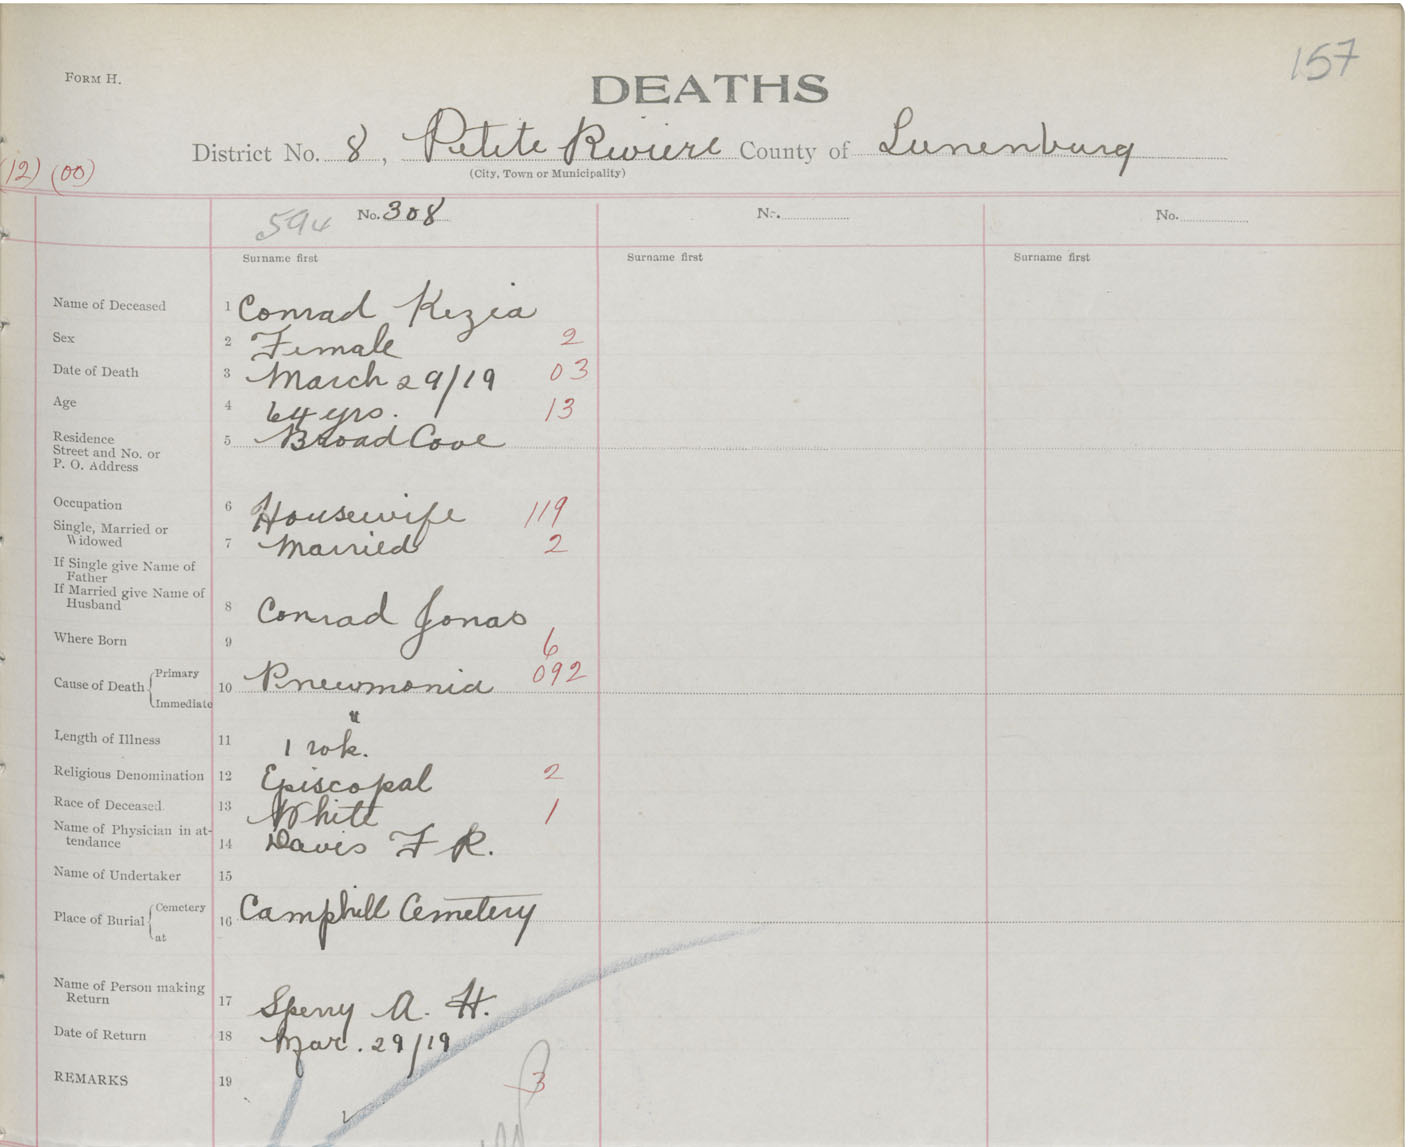 157
FORM H.
DEATHS
District No. 8, Petite Riviere County of Lunenburg
(City, Town or Municipality)
(12) (00)
594 No. 308 No. No.
Surname first Surname first Surname first
Name of Deceased 1 Conrad Kezia
Sex 2 Female 2
Date of Death 3 March 29/19 03
Age 4 64 yrs. 13
Residence 5 Broad Cove
Street and No. or
P. O. Address
Occupation 6 Housewife 119
Single, Married or
Widowed 7 Married 2
If Single give Name of
Father
If Married give Name of
Husband 8 Conrad Jonas
Where Born 9 6
Cause of Death Primary 10 Pneumonia 092
Immediate "
Length of Illness 11 1 wk.
Religious Denomination 12 Episcopal 2
Race of Deceased. 13 White 1
Name of Physician in at-
tendance 14 Davis F R.
Name of Undertaker 15
Place of Burial Cemetery 16 Camphill Cemetery
at
Name of Person making
Return 17 Sperry A. H.
Date of Return 18 Mar. 29/19
REMARKS 19 3